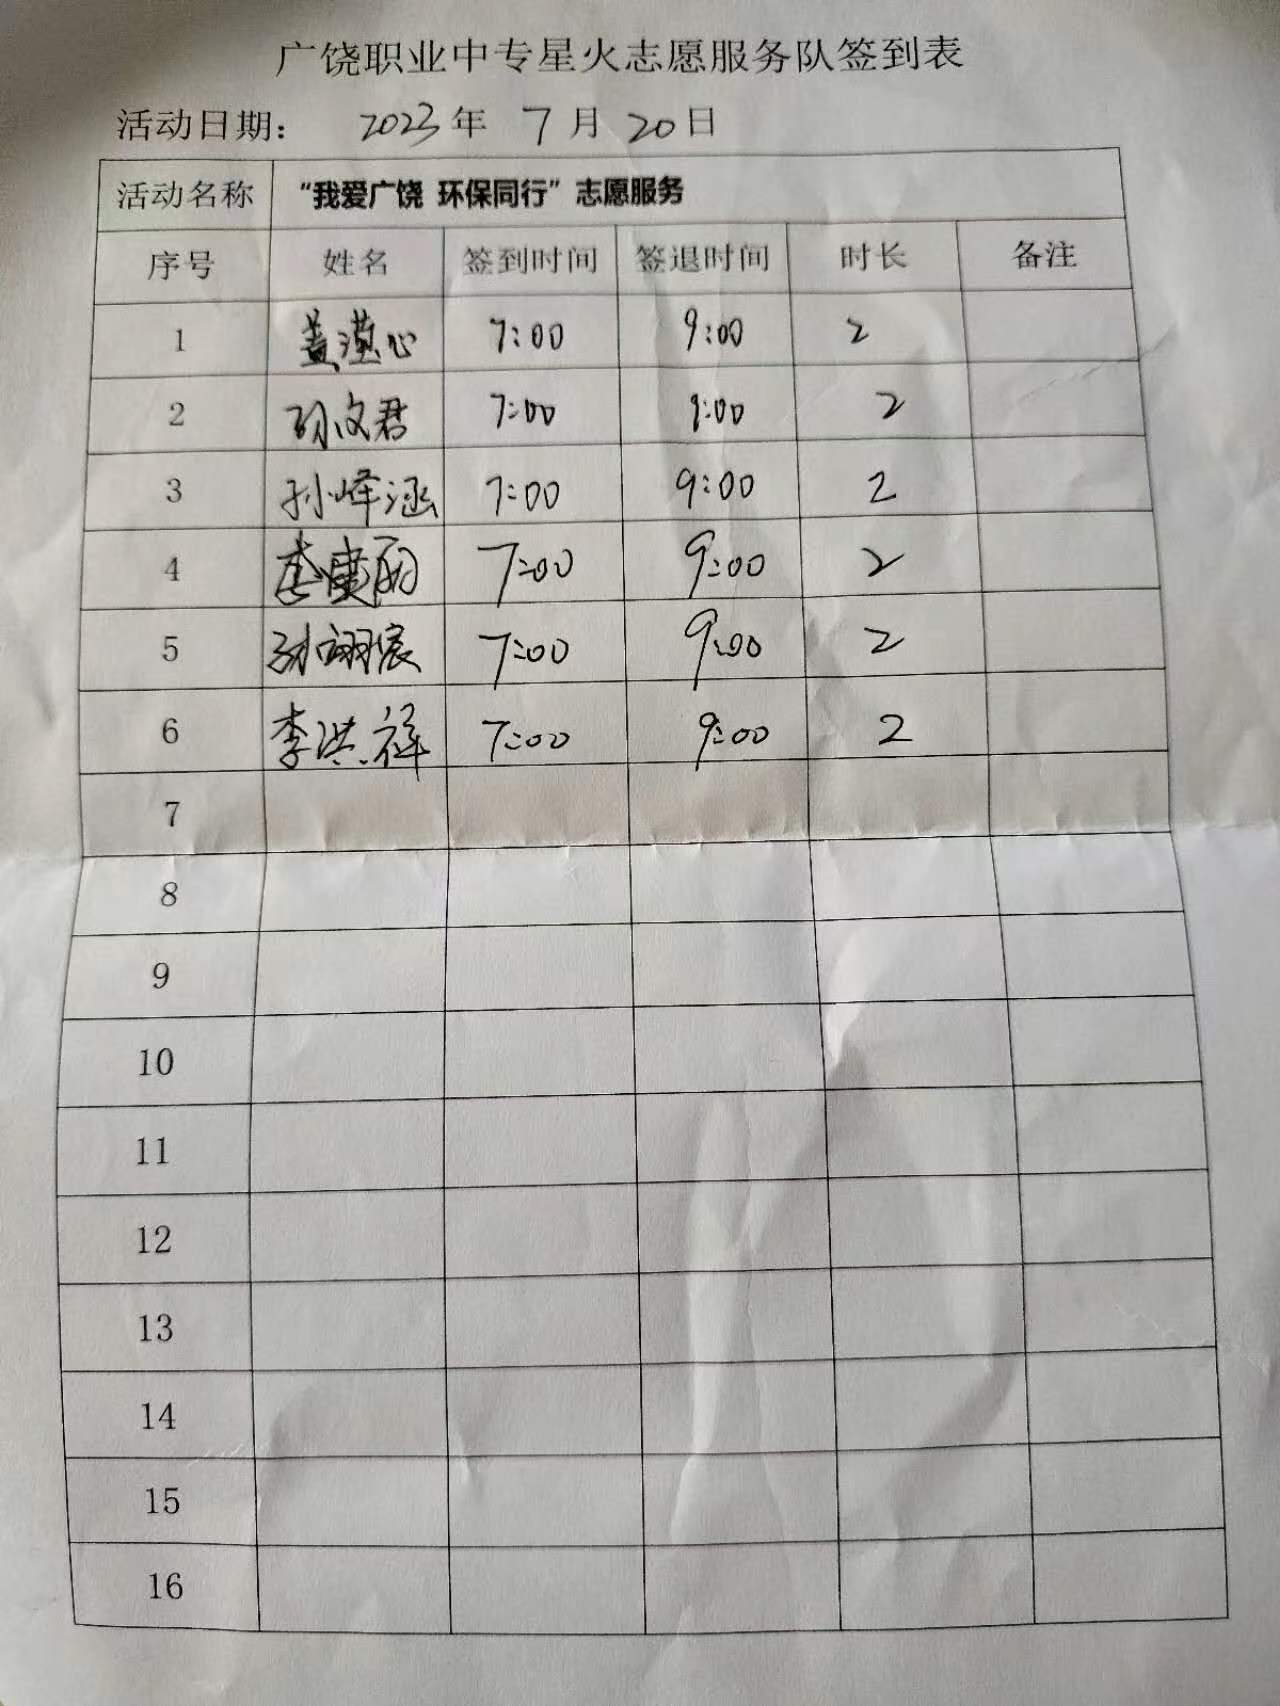 广饶职业中专星火志愿服务队签到表
活动日期： 2023年 7月20日
活动名称 “我爱广饶 环保同行”志愿服务
序号 姓名 签到时间 签退时间 时长 备注
1 盖滢心 7:00 9:00 2
2 孙文君 7:00 9:00 2
3 孙峰涵 7:00 9:00 2
4 李 7:00 9:00 2
5 孙翊宸 7:00 9:00 2
6 李洪祥 7:00 9:00 2
7
8
9
10
11
12
13
14
15
16